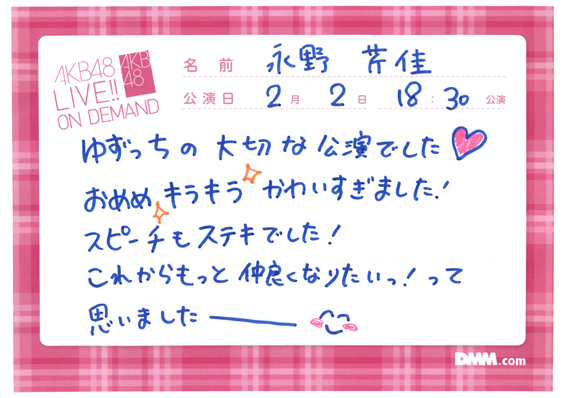 AKB48
LIVE!!
ON DEMAND
AKB
48
名前 永野 芹佳
公演日 2月 2日 18:30 公演
ゆずっちの 大切な公演でした
おめめキラキラ かわいすぎました!
スピーチも ステキでした!
これからもっと 仲良くなりたいっ! って
思いました
DMM.com